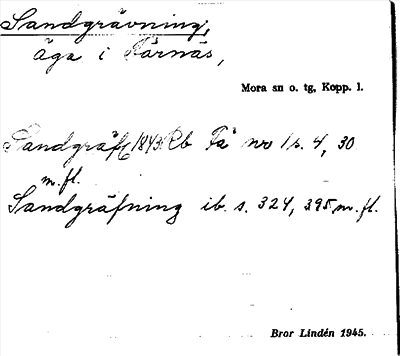 Sandgrävning,
äga i Färnäs,
Mora sn o. tg, Kopp. l.
Sandgräf 1843 Rb Fä nr 1 s. 4, 30
m. fl.
Sandgräfning ib. s. 324, 395 m. fl.
Bror Lindén 1945.